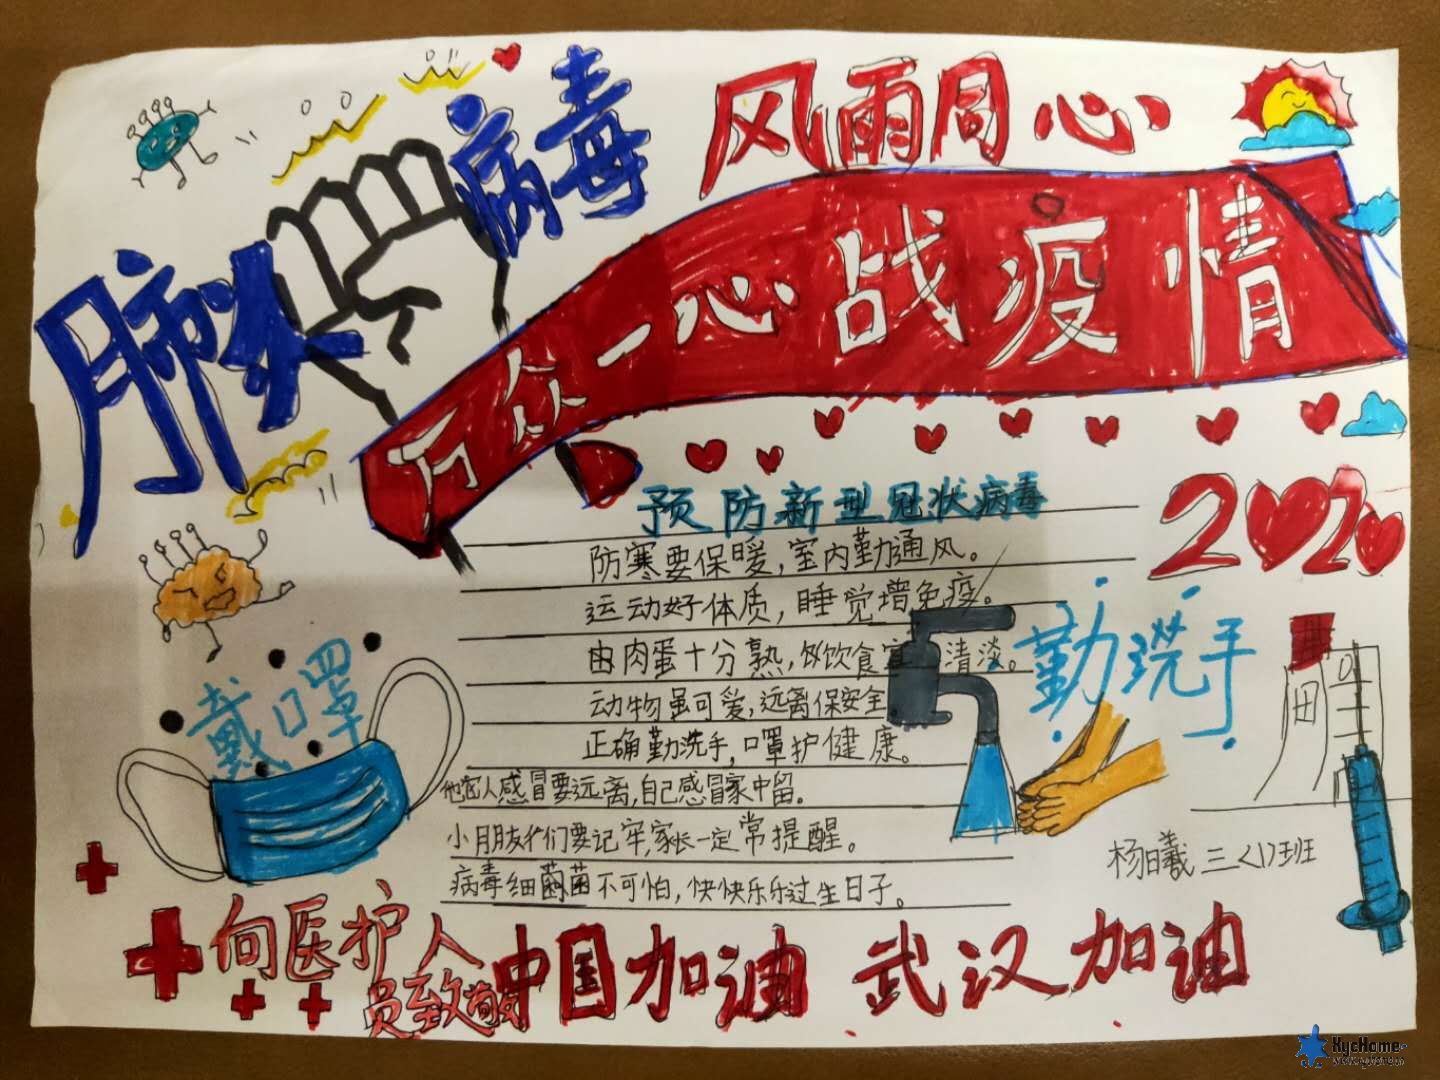 肺炎
病毒
风雨同心
万众一心战疫情
2020
预防新型冠状病毒
防寒要保暖，室内勤通风。
运动好体质，睡觉增免疫。
肉蛋十分熟，饮食 清淡。
动物虽可爱，远离保安全
正确勤洗手，口罩护健康。
他人感冒要远离，自己感冒家中留。
小朋友们要记牢，家长一定常提醒。
病毒细菌不可怕，快快乐乐过生日子。
戴口罩
勤洗手
杨曦 三<1>班
向医护人
员致敬
中国加油 武汉加油
XycHome